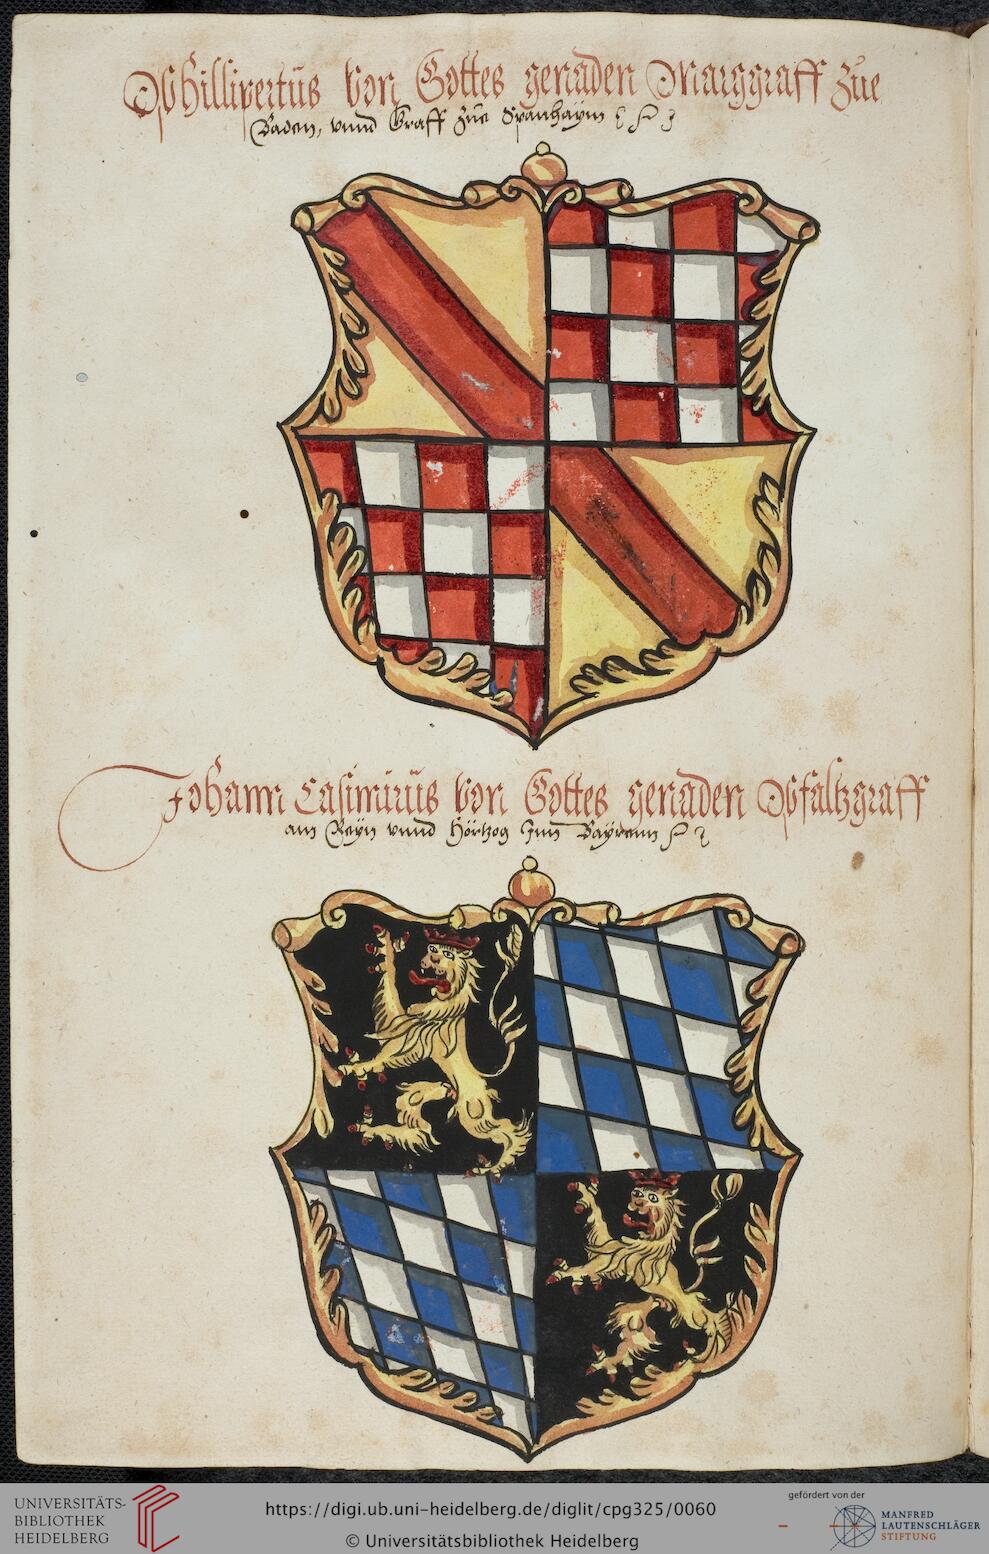 Phillipertüs von Gottes genaden Marggraff züe
Baden, vnnd Graff züe Spanhaym
Johann Casimirüs von Gottes genaden Pfaltzgraff
am Reyn vnnd Hörtzog Inn Bayrenn
UNIVERSITÄTS-
BIBLIOTHEK
HEIDELBERG
https://digi.ub.uni-heidelberg.de/diglit/cpg325/0060
© Universitätsbibliothek Heidelberg
gefördert von der
MANFRED
LAUTENSCHLÄGER
STIFTUNG